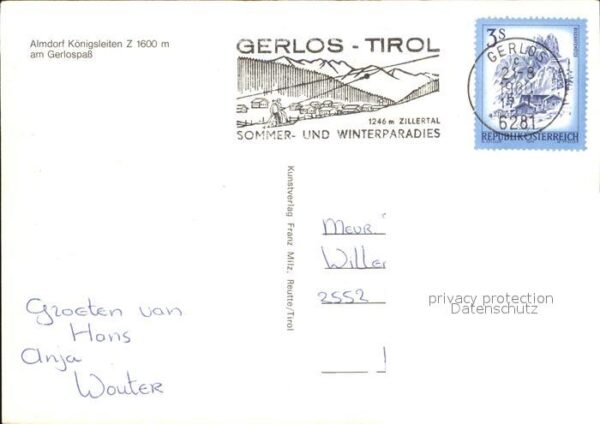 Almdorf Königsleiten Z 1600 m
am Gerlospaß
GERLOS - TIROL
1246 m ZILLERTAL
SOMMER- UND WINTERPARADIES
3S
REPUBLIK ÖSTERREICH
GERLOS
6281
Kunstverlag Franz Milz, Reutte/Tirol
Meur
Willer
2552
privacy protection
Datenschutz
Groeten van
Hans
Anja
Wouter